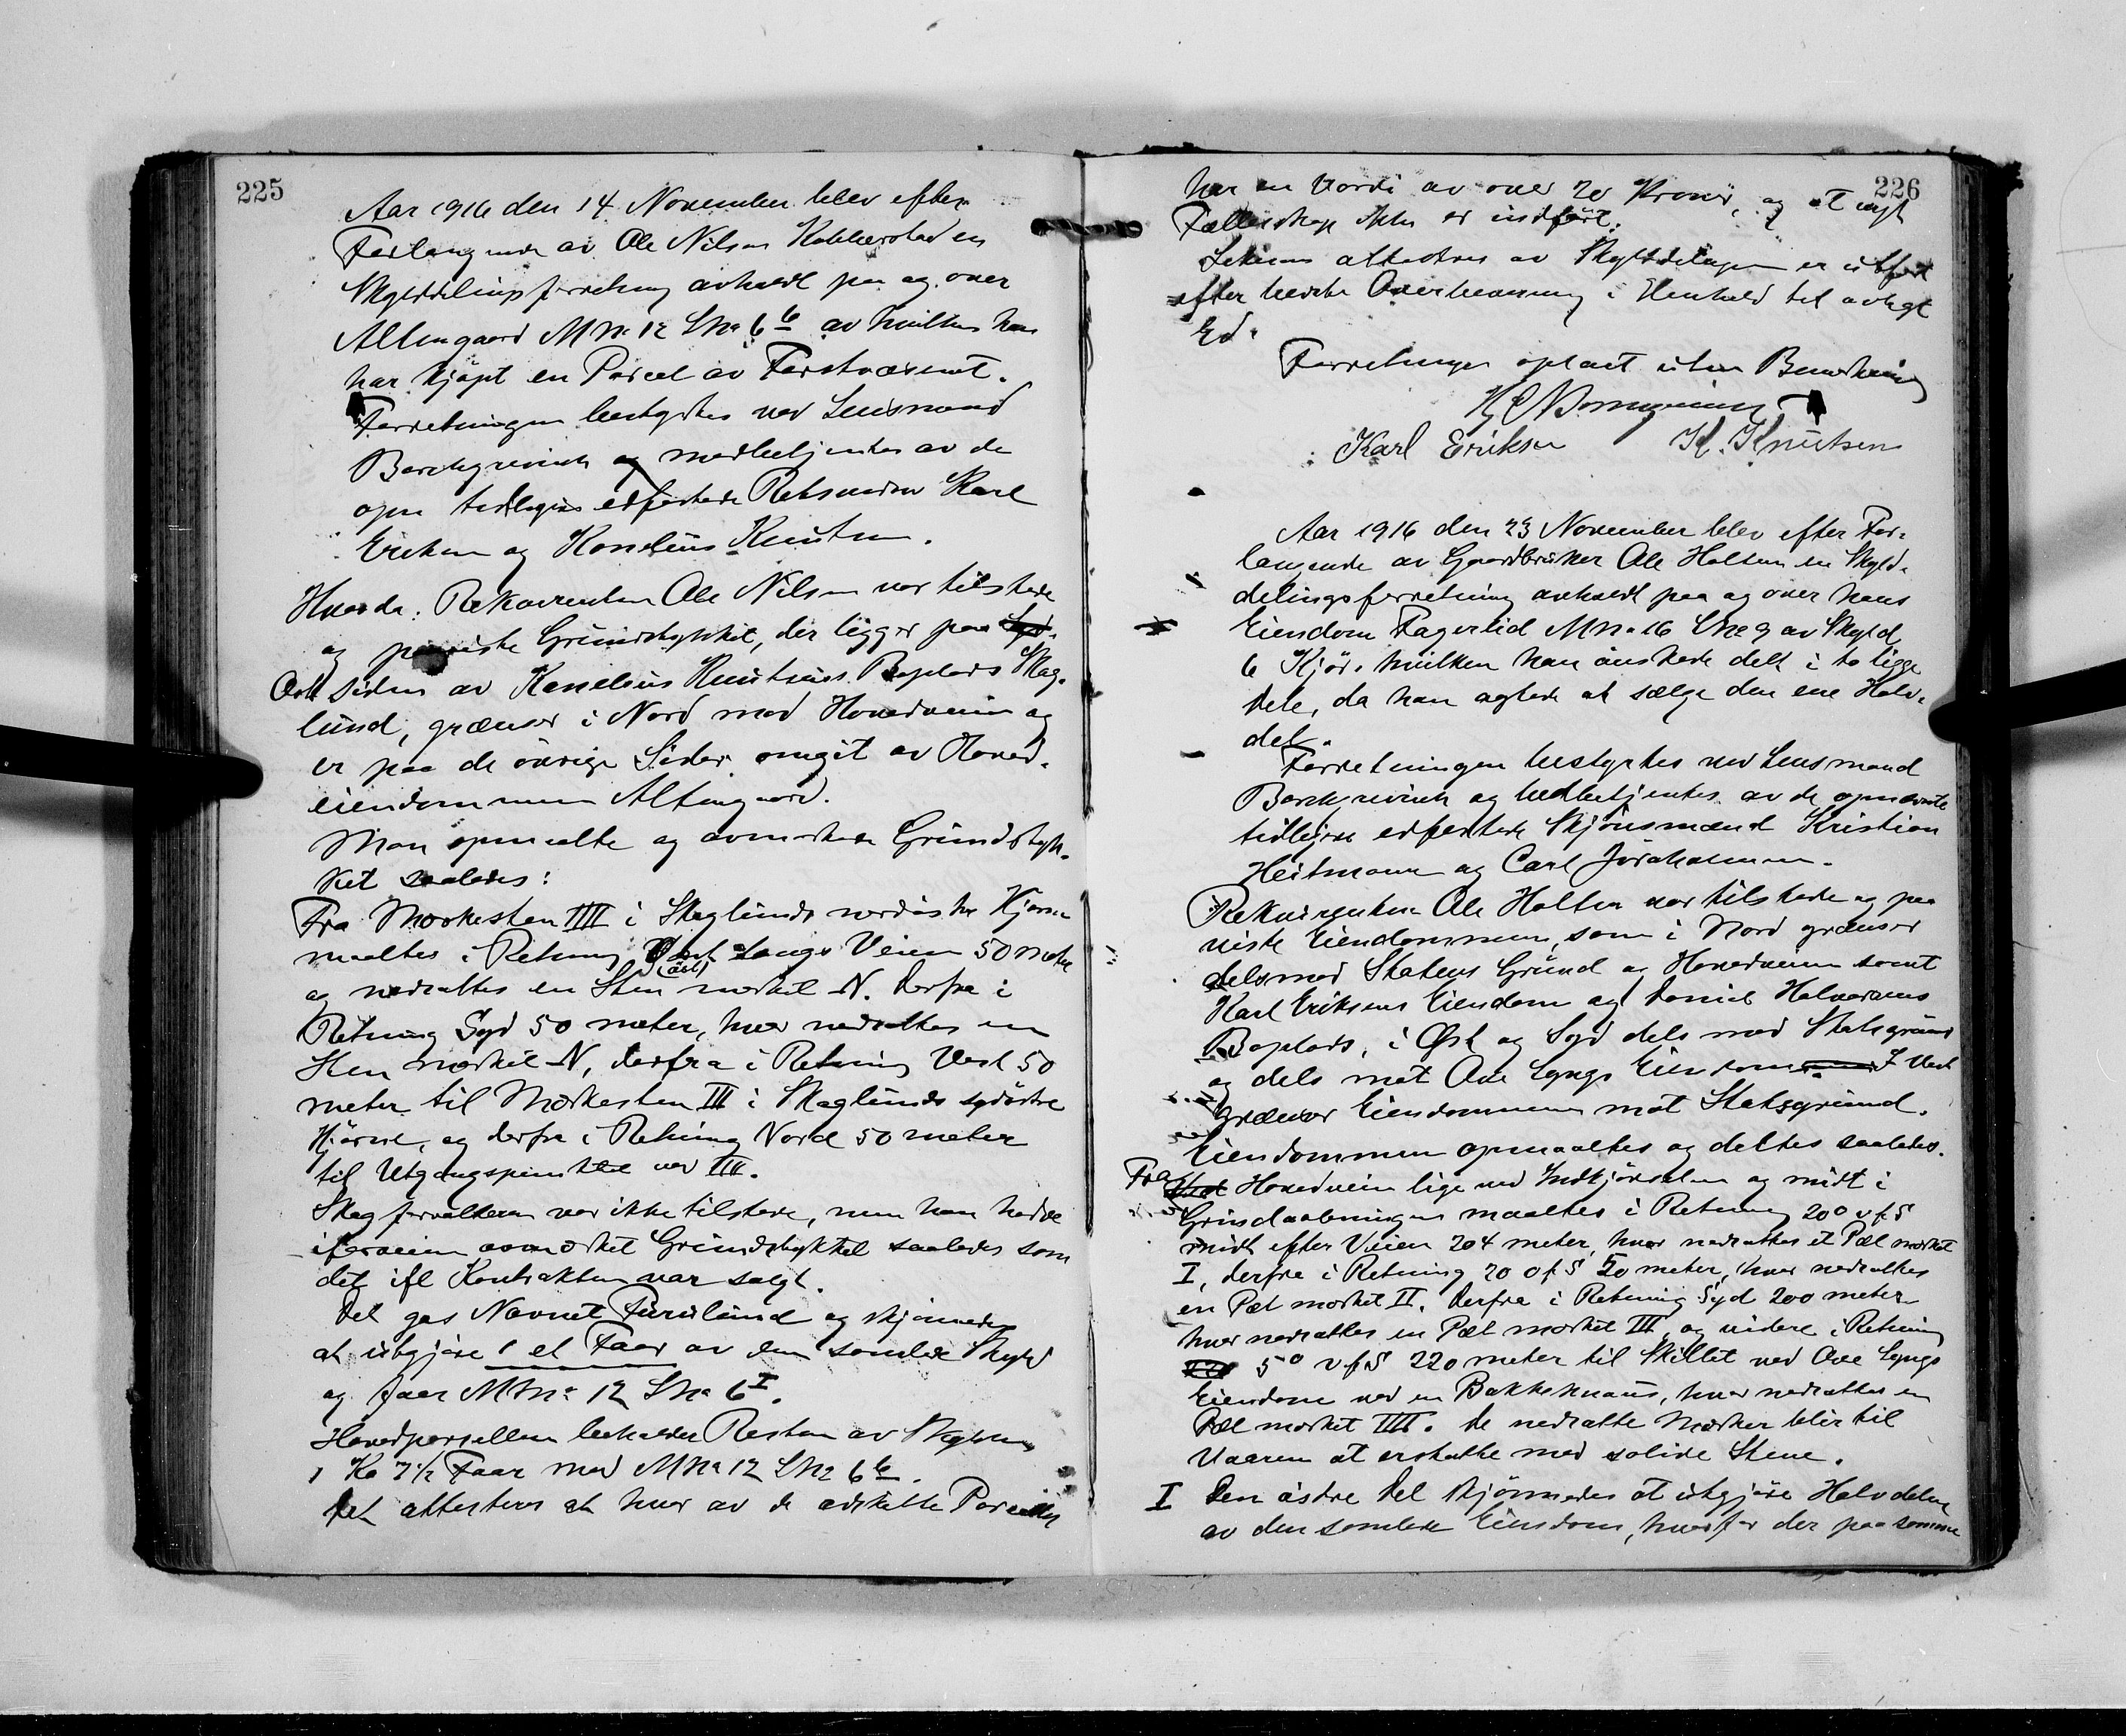 225
Aar 1916 den 14 November blev efter
Forlangende av Ole Nilsen Kobberstad en
Skylddelingsforretning avholdt paa og over
Altengaard M No 12 L No 6 6 av hvilken han
har kjøpt en Parcel av Forstvæsenet.
Forretningen bestyrtes ved Lensmand
Borchgrevink og medbetjentes av de
opn tidligere edfestede Retsmænd Karl
Eriksen og Kornelius Knutsen.
Hvorda: Rekvirenten Ole Nilsen var tilstede
og paaviste Grundstykket, der ligger paa Syd-
Øst siden av Kornelius Knutsens Boplads Skog-
lund, grænser i Nord mod Hovedveien og
er paa de øvrige Sider omgit av Hoved-
eiendommen Altengaard.
Man opmaalte og avmerkede Grundstyk-
ket saaledes:
Fra Merkesten IIII i Skoglunds nordøstre Hjørne
maaltes i Retning Vest langs Veien 50 meter
(øst)
og nedsattes en Sten merket N. Derfra i
Retning Syd 50 meter, hvor nedsattes en
Sten merket N, derfra i Retning Vest 50
meter til Merkesten III i Skoglunds sydøstre
Hjørne, og derfra i Retning Nord 50 meter
til Utgangspunktet ved IIII.
Skogforvalteren var ikke tilstede, men han hadde
iforveien avmerket Grundstykket saaledes som
det ifl Kontrakten var solgt.
Det gas Navnet Furulund og skjønnedes
at utgjøre 1 et Faar av den samlede Skyld
og faar M No 12 L No 6 I.
Hovedparsellen beholder Resten av Skylden
1 Ko 7 1/2 Faar med M No 12 L No 6 6.
Det attesteres at hver av de adskilte Parceller
226
har en Værdi av over 20 Kroner, og at nyt
Fællesskap ikke er indført.
Likesaa attesteres av Skylddelingen er utført
efter bedste Overbevisning i Henhold til avlagt
Ed.
Forretningen oplæst uten Bemerkning
H C Borchgrevink
Karl Eriksen K. Knutsen
Aar 1916 den 23 November blev efter For-
langende av Gaardbruker Ole Holten en Skyld-
delingsforretning avholdt paa og over hans
Eiendom Fagerlid M No 16 L No 9 av Skyld
6 Kjør. hvilken han ønskede delt i to lige
Dele, da han agtede at sælge den ene Halv-
del.
Forretningen bestyrtes ved Lensmand
Borchgrevink og medbetjentes av de opnævnte
tidligere edfestede Skjønsmænd Kristian
Heitmann og Carl Johannesen.
Rekvirenten Ole Holten var tilstede og paa
viste Eiendommen, som i Nord grænser
dels mod Statens Grund og Hovedveien samt
Karl Eriksens Eiendom og Daniel Halvorsens
Boplads, i Øst og Syd dels mod Statsgrund
og dels mot Ove Lyngs Eiendom. I Vest
grænser Eiendommen mot Statsgrund.
Eiendommen opmaaltes og deltes saaledes.
Fra Hovedveien lige ved Indkjørselen og midt i
Grindaabningen maaltes i Retning 20° v f S
midt efter Veien 204 meter, hvor nedsattes et Pæl merket
I, derfra i Retning 20 o f S 50 meter, hvor nedsattes
en Pæl merket II. Derfra i Retning Syd 200 meter
hvor nedsattes en Pæl merket III, og videre i Retning
5° v f S 220 meter til Skillet ved Ove Lyngs
Eiendom ved en Bakkeknaus, hvor nedsattes en
Pæl merket IIII. De nedsatte Merker blir til
Vaaren at erstatte med solide Stene.
I Den østre Del skjønnedes at utgjøre Halvdelen
av den samlede Eiendom, hvorfor der paa samme